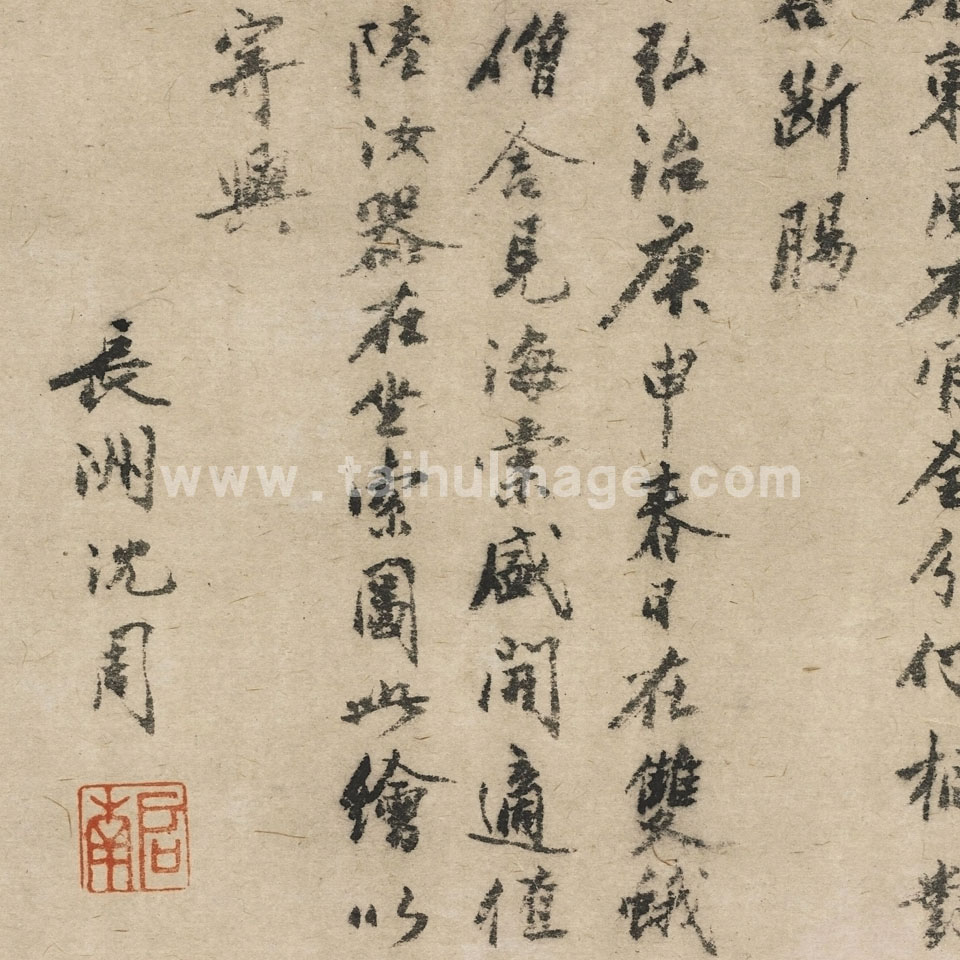 東風不全分
斷腸
弘治庚申春日在雙蛾
僧舍見海棠盛開適值
陸汝器在坐索圖此繪以
寄興
長洲沈周
启南
www.taihuImage.com